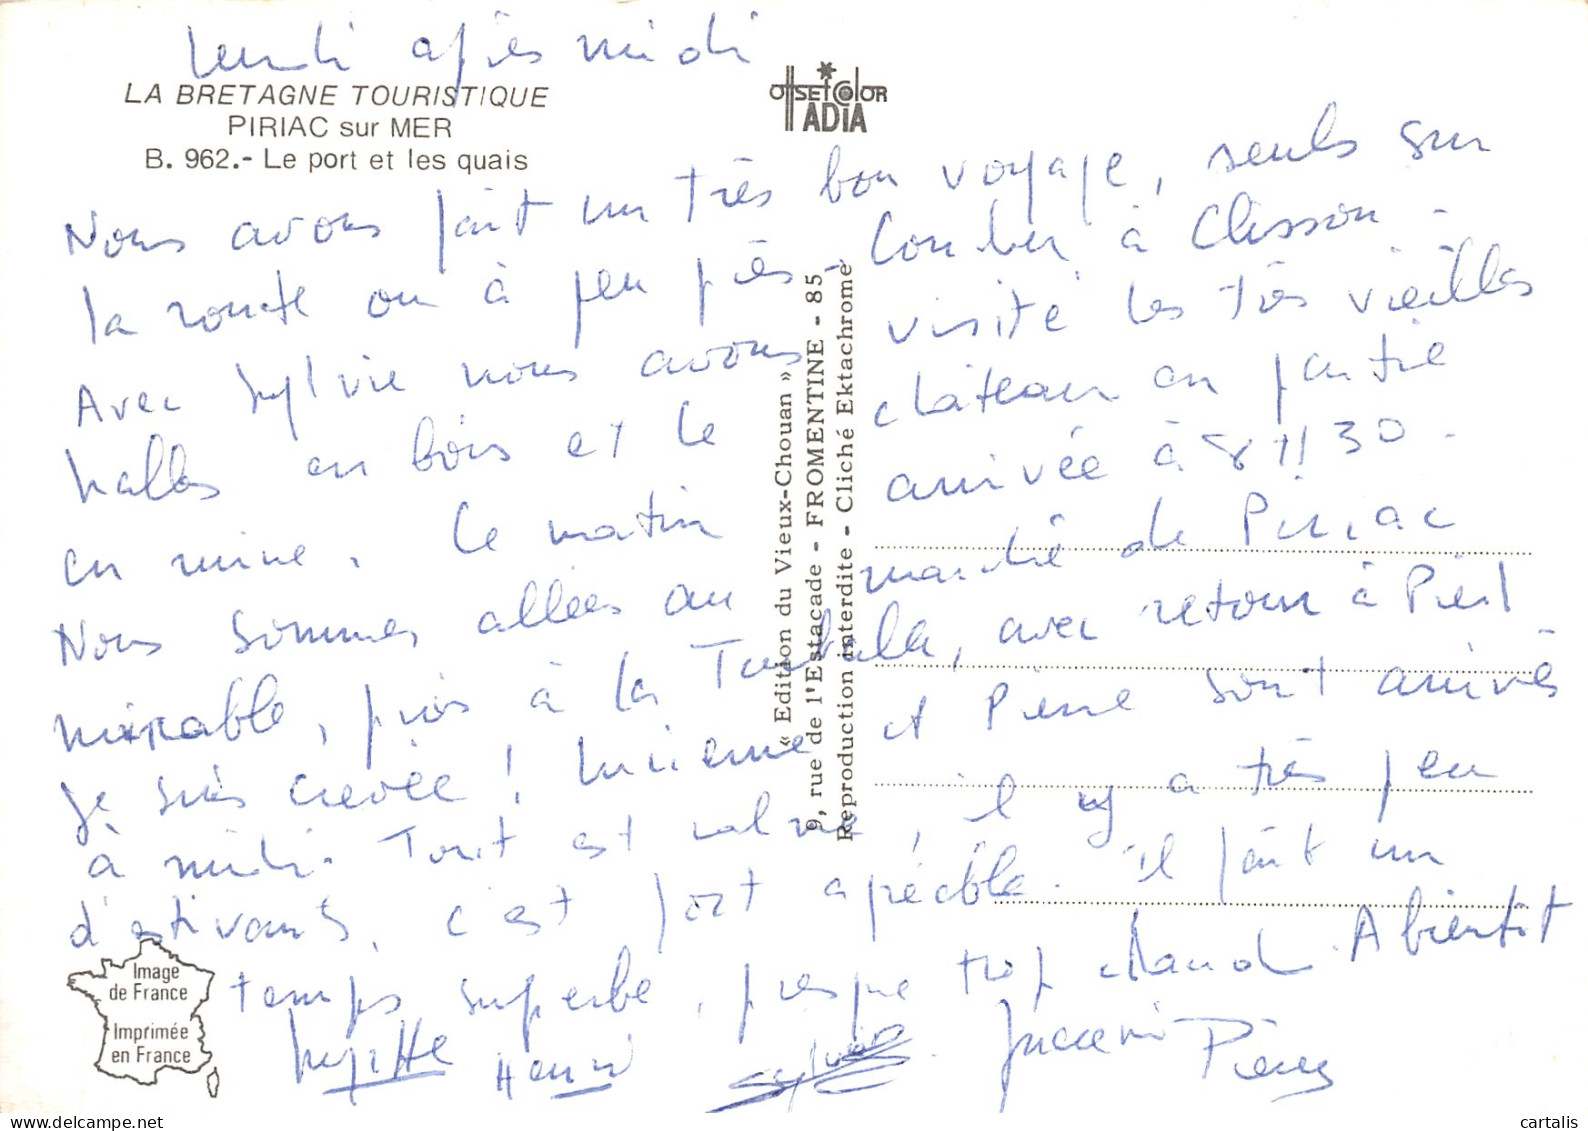 lundi après midi
LA BRETAGNE TOURISTIQUE
PIRIAC sur MER
B. 962.- Le port et les quais
OffSET COlOR
ADIA
Nous avons fait un très bon voyage, seuls sur
la route ou à peu près. Coucher à Clisson.
Avec Sylvie nous avons visité les très vieilles
halles en bois et le château en partie
en ruine. arrivée à 8 H 30.
Le matin
Nous sommes allées au marché de Piriac
puis à la Turballe, avec retour à Pied
je suis crevée ! Lucienne et Pierre sont arrivés
à midi. Tout est calme, il y a très peu
d'estivants, c'est fort agréable. il fait un
temps superbe, presque trop chaud. A bientôt
Henri Sylvie Lucienne Pierre
« Edition du Vieux-Chouan »
9, rue de l'Estacade - FROMENTINE - 85
Reproduction interdite - Cliché Ektachrome
Image
de France
Imprimée
en France
© www.delcampe.net
cartalis